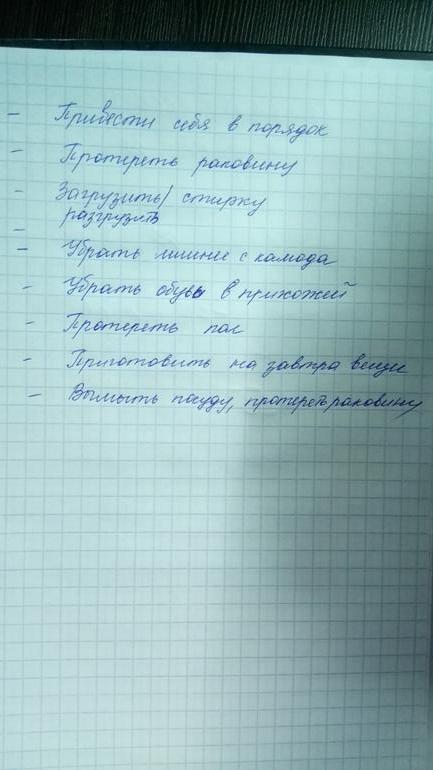 - Привести себя в порядок
- Протереть раковину
- Загрузить/ стирку
- разгрузить
- Убрать лишнее с камода
- Убрать обувь в прихожей
- Протереть пол
- Приготовить на завтра вещи
- Вымыть посуду, протереть раковину